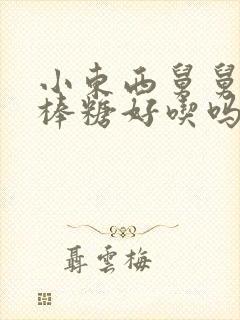 小东西舅舅
棒糖好喫吗
聶雲梅